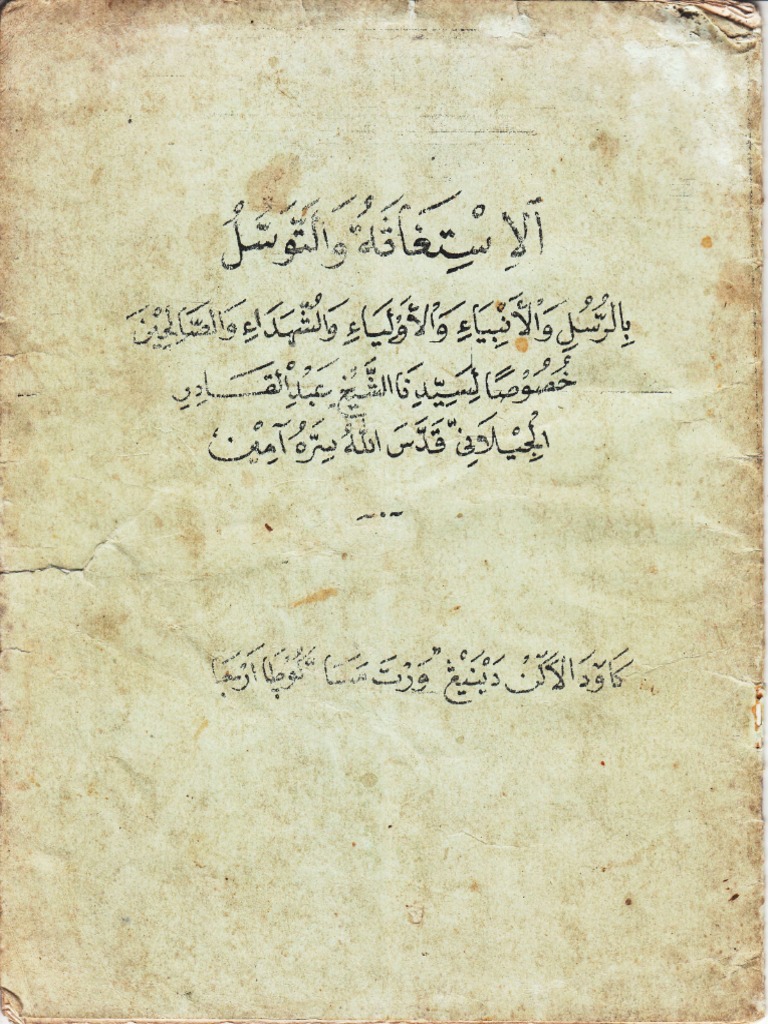 اَلْاِسْتِغَاثَةُ وَالتَّوَسُّلُ
بِالرُّسُلِ وَالْأَنْبِيَاءِ وَالْأَوْلِيَاءِ وَالشُّهَدَاءِ وَالصَّالِحِيْنَ
خُصُوْصًا لِسَيِّدِنَا الشَّيْخِ عَبْدِ الْقَادِرِ
الْجِيْلَانِيّ قَدَّسَ اللهُ سِرَّهُ آمِيْن
كَاوَدَالَاكَنْ دَيْنَيْڠْ